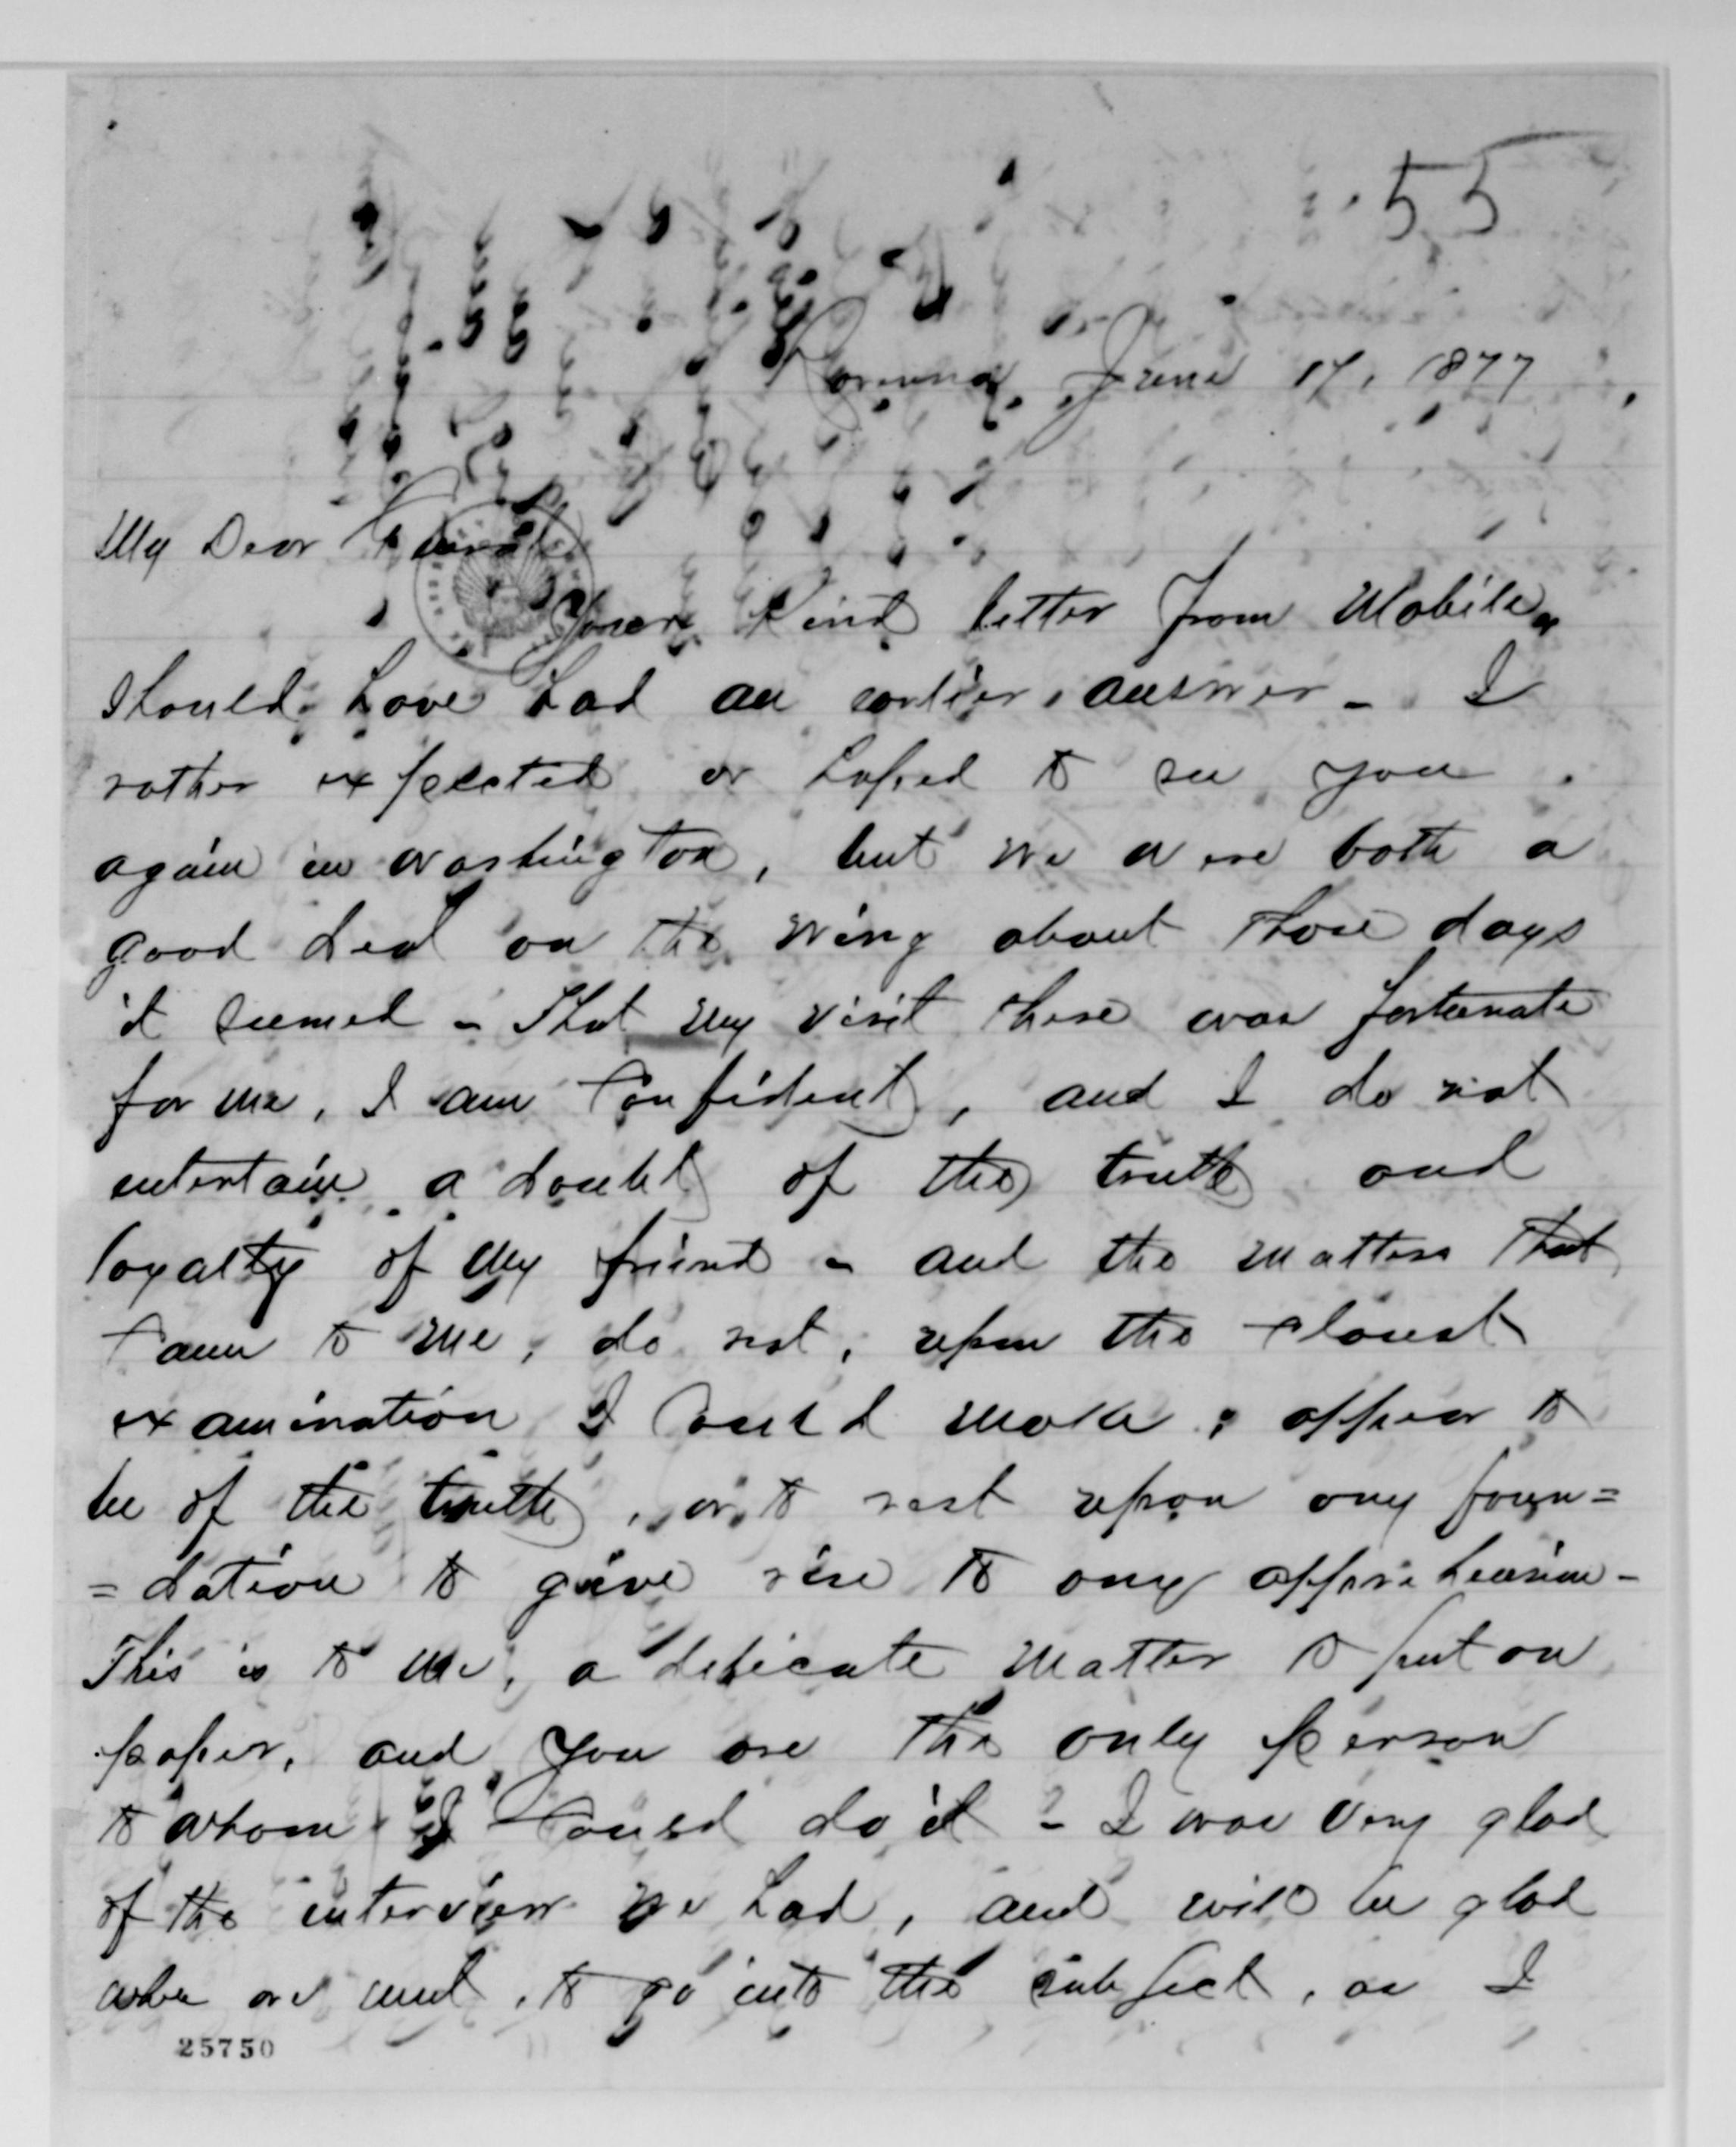 55
June 17, 1877
My Dear General
Your kind letter from Mobile,
should have had an earlier answer - I
rather expected or hoped to see you
again in Washington, but we were both a
good deal on the wing about those days
it seemed - That my visit there was fortunate
for me, I am confident, and I do not
entertain a doubt of the truth and
loyalty of my friend - and the matters that
came to me, do not, upon the closest
examination I could make, appear to
be of the truth, or to rest upon any foun=
=dation to give rise to any apprehension -
This is to me, a delicate matter to put on
paper, and you are the only person
to whom I could do it - I was very glad
of the interview we had, and will be glad
when we meet, to go into the subject, as I
25750